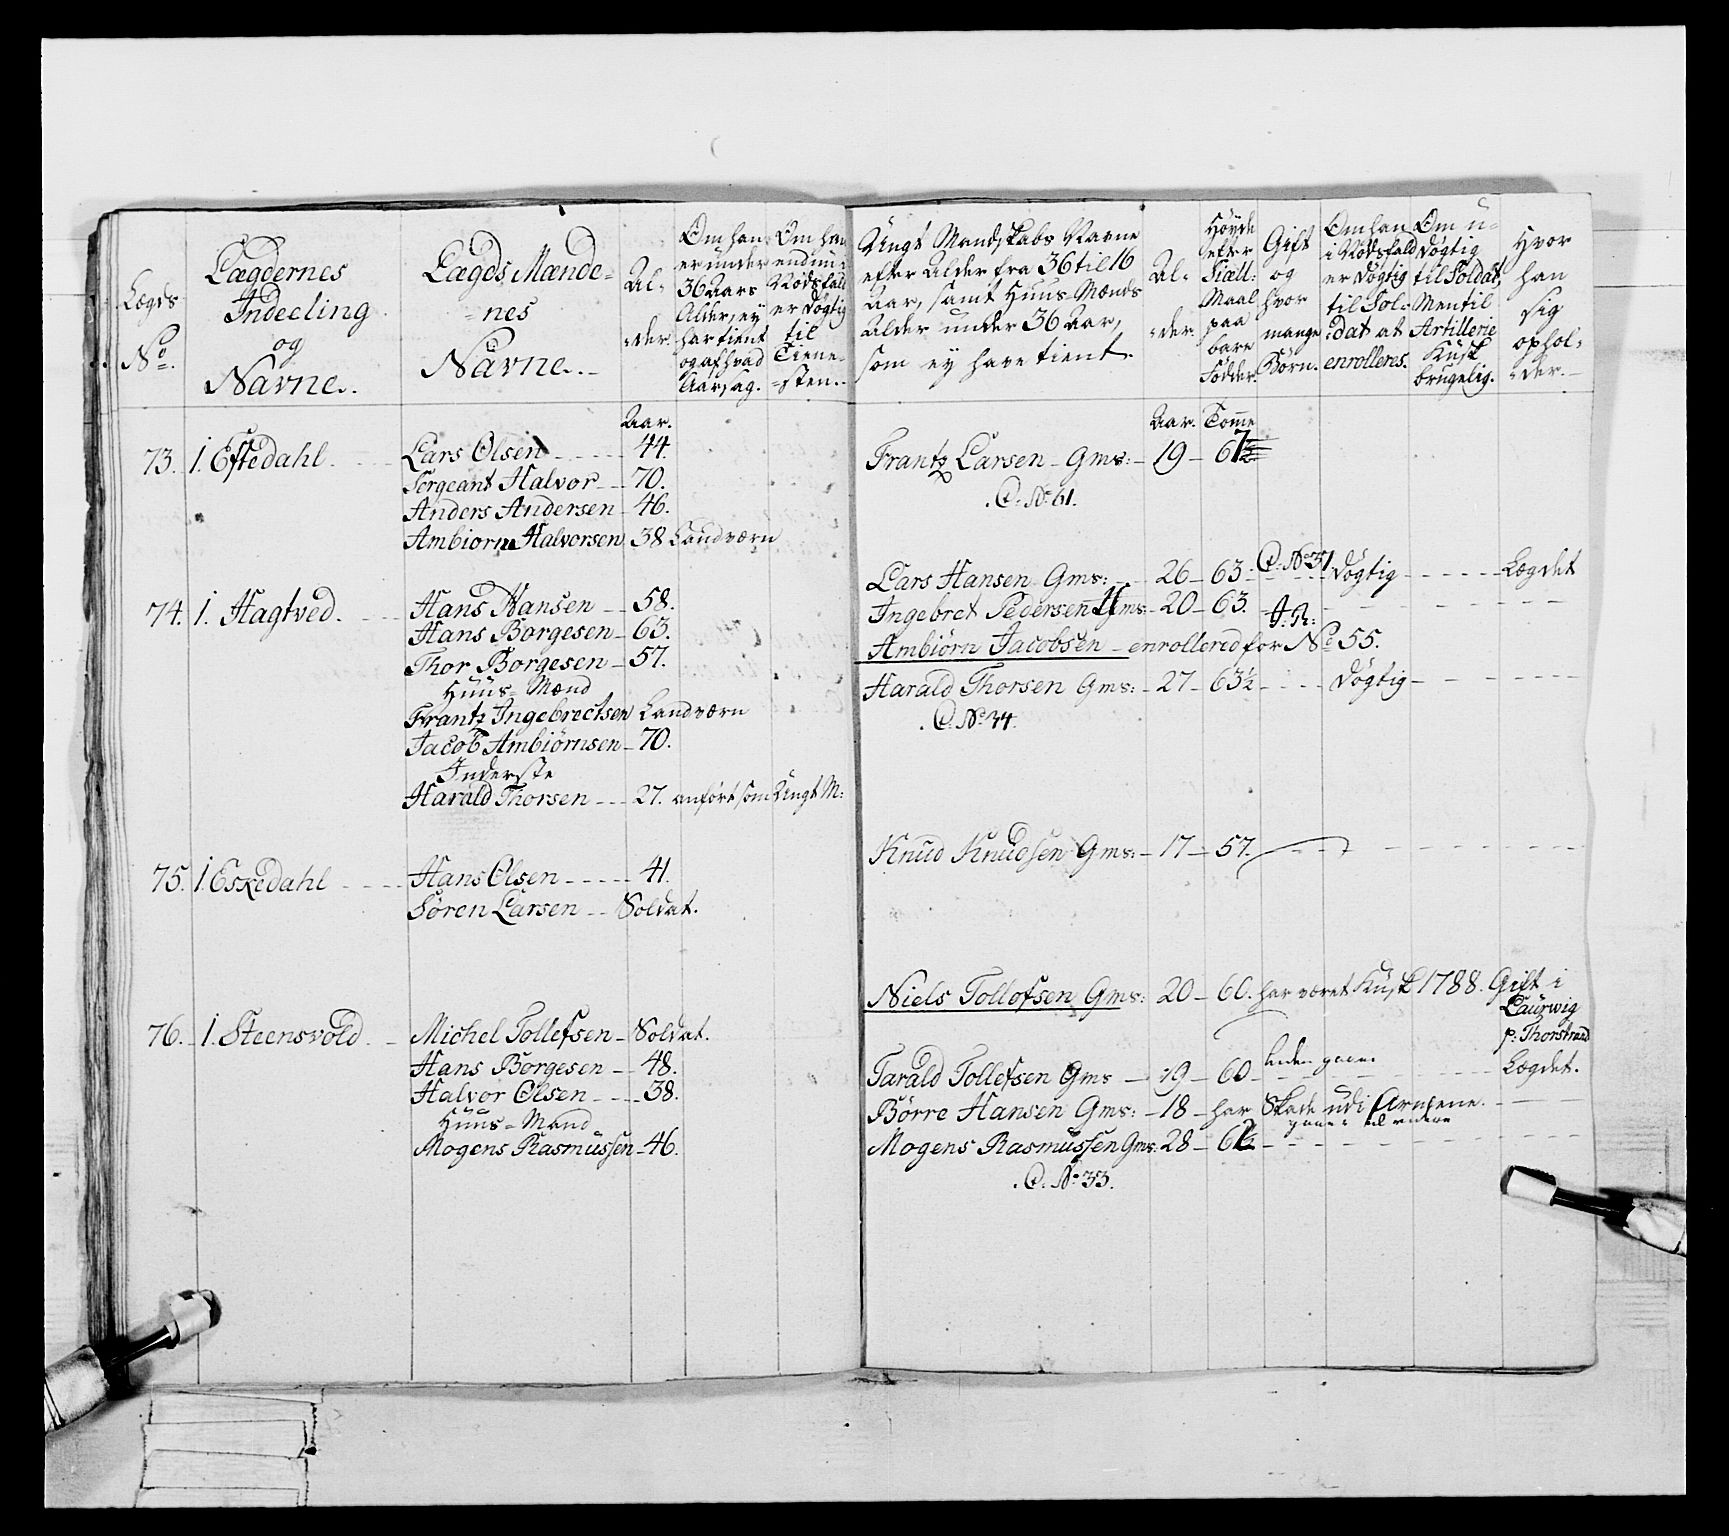 Lægds
No.
Lægdernes
Indeeling
og
Navne.
Lægds Mænde-
nes
Navne.
Al-
der.
Om han
er under
36 Aars
Alder, ey
har tient
og af hvad
Aarsag.
Om han
endnu i
Nødsfald
er døgtig
til
Tiene-
sten.
Ungt Mandskabs Navne
efter Alder fra 36 til 16
Aar, samt Huus-Mænds
Alder under 36 Aar,
som ey have tient.
Al-
der.
Høyde
efter
Siæll:
Maal
paa
bare
Födder.
Gift
og
hvor
mange
Børn.
Om han
i Nödsfald
er døgtig
til Sol-
dat at
enrolleres.
Om u-
døgtig
til Soldat,
Men til
Artillerie
Kusk
brugelig.
Hvor
han
sig
ophol-
der.
Aar.
Aar. Tomme
73. 1. Eftedahl. Lars Olsen 44.
Sergeant Halvor 70.
Anders Andersen 46.
Ambiorn Halvorsen 38 Landværn
Frantz Larsen Gms: 19 67
C. No. 61.
74. 1. Hagtved. Hans Hansen 58.
Hans Borgesen 63.
Thor Borgesen 57.
Huus-Mænd
Frantz Ingebrectsen Landværn
Jacob Ambiörnsen 70.
Inderste
Harald Thorsen 27. anført som Ungt M:
C. No 31
Lars Hansen Gms: 26 63 Døgtig Lægdet
Ingebret Pedersen Gms: 20 63.
Ambiörn Jacobsen enrollered for No 55.
Harald Thorsen Gms: 27 63½ Døgtig
C. No. 34.
75. 1. Eskedahl Hans Olsen 41.
Sören Larsen Soldat.
Knud Knudsen Gms: 17 57.
76. 1. Steensvold Michel Tollefsen Soldat.
Hans Borgesen 48.
Halvor Olsen 38.
Huus-Mand
Mogens Rasmussen 46.
Niels Tollofsen Gms: 20 60. har været Kusk 1788. Gift i
Laurwig
p: Thorstrand
Tarald Tollefsen Gms 19 60 Lægdet.
Börre Hansen Gms: 18 har Skade udi Armene.
Mogens Rasmussen Gms: 28
C. No. 33.